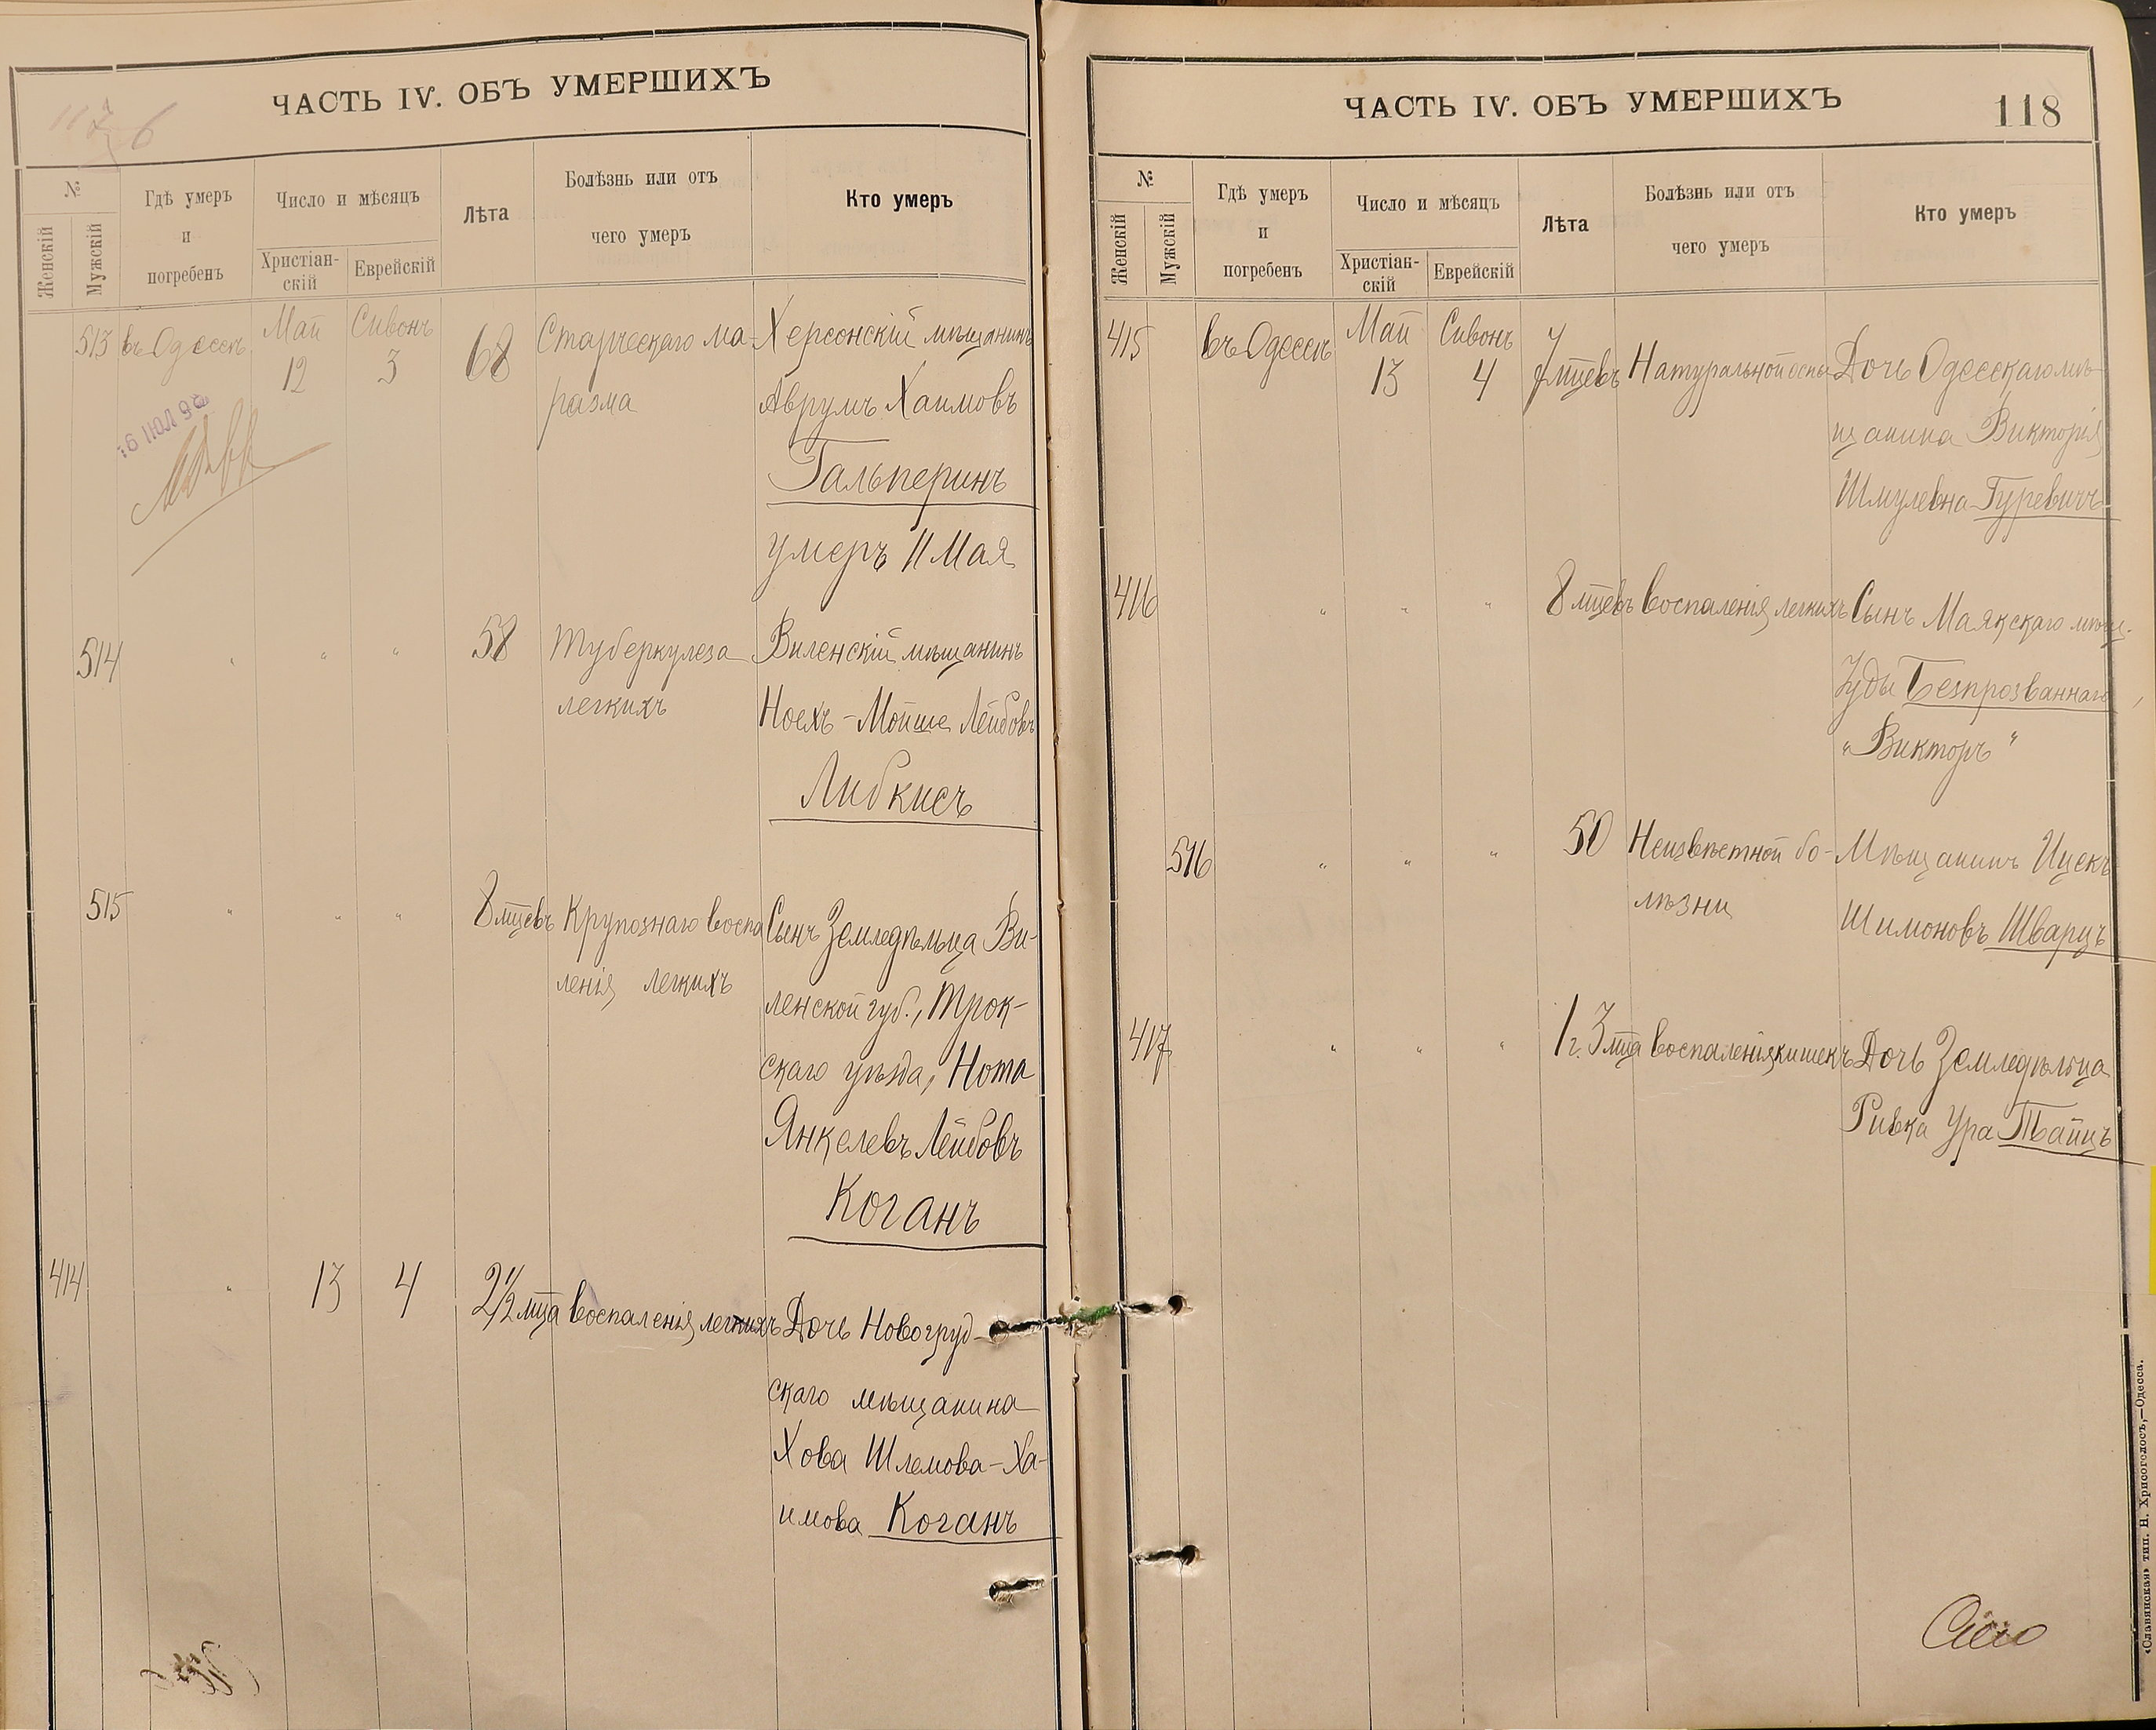 ЧАСТЬ IV. ОБЪ УМЕРШИХЪ
№
Женскій
Мужскій
Гдѣ умеръ
и
погребенъ
Число и мѣсяцъ
Христіан-
скій
Еврейскій
Лѣта
Болѣзнь или отъ
чего умеръ
Кто умеръ
513 въ Одессѣ Май 12 Сивонъ 3 68 Старческаго ма- Херсонскій мѣщанинъ
разма Аврумъ Хаимовъ
Гальперинъ
умеръ 11 Мая
16 ІЮЛ 98
514 " " " 58 Туберкулеза Виленскій мѣщанинъ
легкихъ Ноехъ-Мойше Лейбовъ
Либкисъ
515 " " " 8 мцевъ Крупознаго воспа Сынъ Земледѣльца Ви-
ленія легкихъ ленской губ., Трок-
скаго уѣзда, Нота
Янкелевъ Лейбовъ
Коганъ
414 " 13 4 2½ мца воспаленія легкихъ Дочь Новогруд-
скаго мѣщанина
Хова Шлемова-Ха-
имова Коганъ
ЧАСТЬ IV. ОБЪ УМЕРШИХЪ
118
№
Женскій
Мужскій
Гдѣ умеръ
и
погребенъ
Число и мѣсяцъ
Христіан-
скій
Еврейскій
Лѣта
Болѣзнь или отъ
чего умеръ
Кто умеръ
415 въ Одессѣ Май 13 Сивонъ 4 7 мцевъ Натуральной оспы Дочь Одесскаго мѣ-
щанина Викторія
Шмулевна Гуревичъ
416 " " " 8 мцевъ воспаленія легкихъ Сынъ Маякскаго мѣщ.
Іуды Безпрозваннаго
"Викторъ"
516 " " " 50 Неизвѣстной бо- Мѣщанинъ Ицекъ
лѣзни Шимоновъ Шварцъ
417 " " " 1 г. 3 мца воспаленія кишекъ Дочь Земледѣльца
Ривка Ура Тайцъ
«Славянская» тип. Н. Хрисогелосъ,—Одесса.